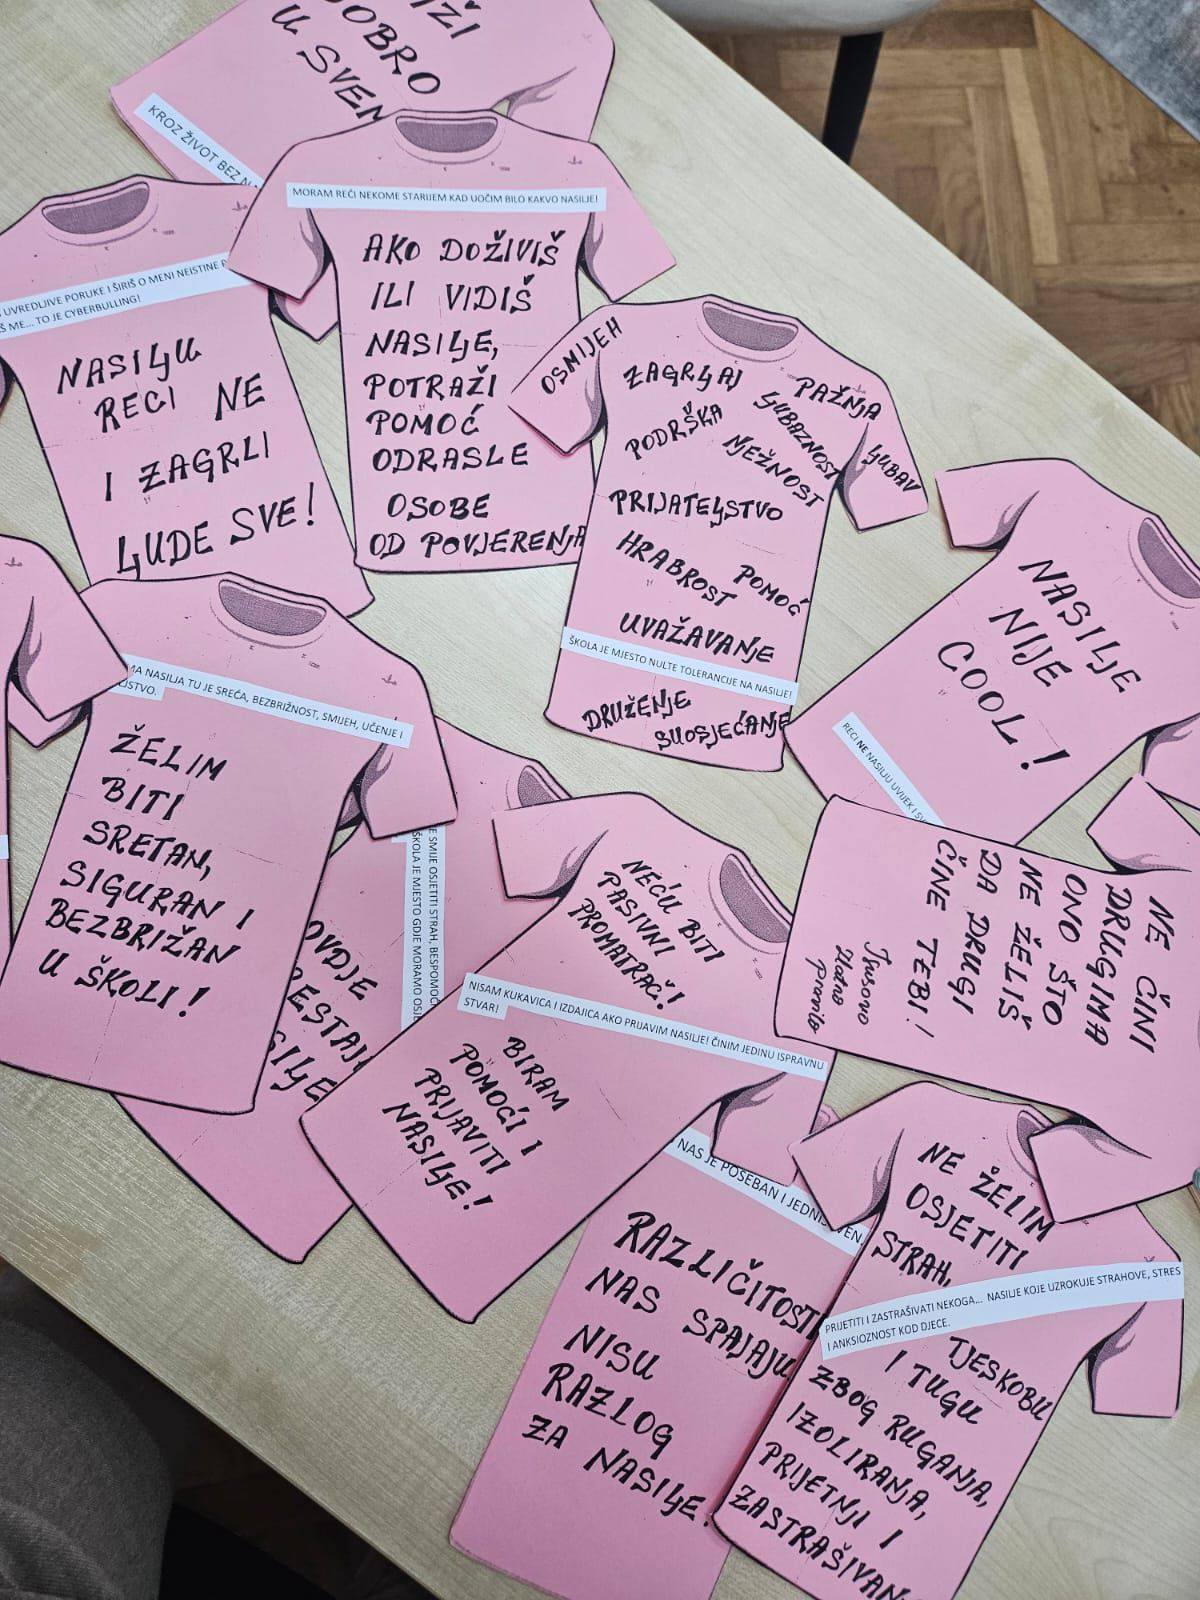 DOBRO
U SVEM
KROZ ŽIVOT BEZ
MORAM REĆI NEKOME STARIJEM KAD UOČIM BILO KAKVO NASILJE!
AKO DOŽIVIŠ
ILI VIDIŠ
NASILJE,
POTRAŽI
POMOĆ
ODRASLE
OSOBE
OD POVJERENJA
UVREDLJIVE PORUKE I ŠIRIŠ O MENI NEISTINE
ME... TO JE CYBERBULLING!
NASILJU
RECI NE
I ZAGRLI
LJUDE SVE!
OSMIJEH
ZAGRLJAJ
PAŽNJA
LJUBAZNOST
LJUBAV
PODRŠKA
NJEŽNOST
PRIJATELJSTVO
HRABROST
POMOĆ
UVAŽAVANJE
ŠKOLA JE MJESTO NULTE TOLERANCIJE NA NASILJE!
DRUŽENJE
SUOSJEĆANJE
NASILJE
NIJE
COOL!
RECI NE NASILJU UVIJEK I
MA NASILJA TU JE SREĆA, BEZBRIŽNOST, SMIJEH, UČENJE I
ŽELIM
BITI
SRETAN,
SIGURAN I
BEZBRIŽAN
U ŠKOLI!
SMIJE OSJETITI STRAH,
ŠKOLA JE MJESTO GDJE MORAMO
OVDJE
NEĆU BITI
PASIVNI
PROMATRAČ!
NISAM KUKAVICA I IZDAJICA AKO PRIJAVIM NASILJE! ČINIM JEDINU ISPRAVNU
STVAR!
BIRAM
POMOĆI I
PRIJAVITI
NASILJE!
NE ČINI
DRUGIMA
ONO ŠTO
NE ŽELIŠ
DA DRUGI
ČINE TEBI!
Zlatno
pravilo
NAS JE POSEBAN I
RAZLIČITOSTI
NAS SPAJAJU
NISU
RAZLOG
ZA NASILJE!
NE ŽELIM
OSJETITI
STRAH,
PRIJETITI I ZASTRAŠIVATI NEKOGA... NASILJE KOJE UZROKUJE STRAHOVE, STRES
I ANKSIOZNOST KOD DJECE.
TJESKOBU
I TUGU
ZBOG RUGANJA,
IZOLIRANJA,
PRIJETNJI I
ZASTRAŠIVAN